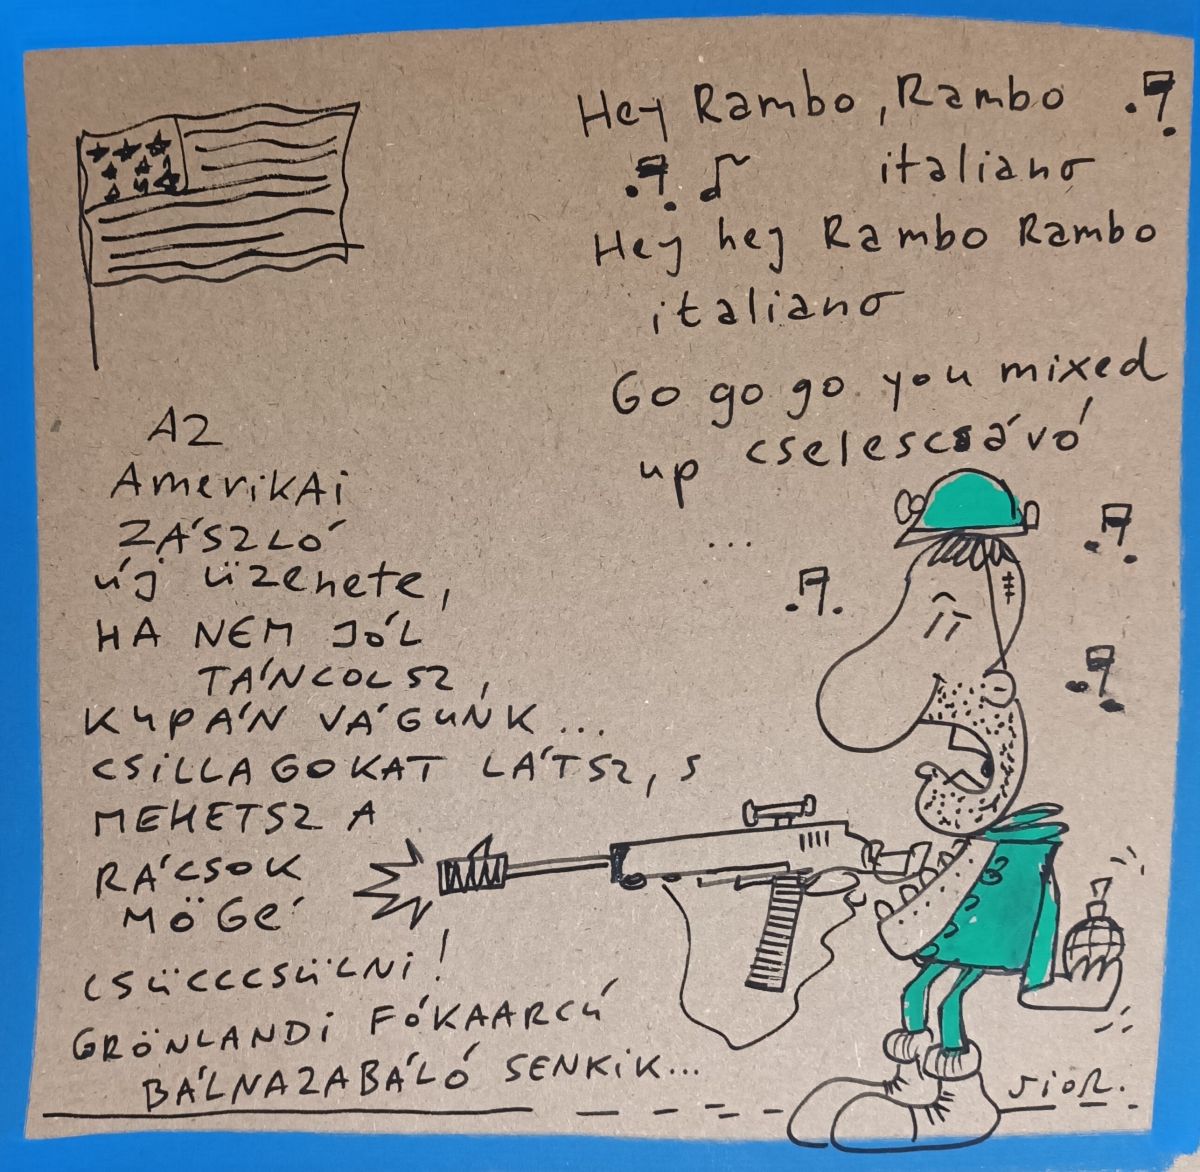 Hey Rambo, Rambo
italiano
Hey hej Rambo Rambo
italiano
Go go go you mixed
up cselescsávó
...
AZ
AMERIKAI
ZÁSZLÓ
ÚJ ÜZENETE,
HA NEM JÓL
TÁNCOLSZ,
KUPÁN VÁGUNK...
CSILLAGOKAT LÁTSZ, S
MEHETSZ A
RÁCSOK
MÖGÉ
CSÜCCCSÜLNI!
GRÖNLANDI FÓKAARCÚ
BÁLNAZABÁLÓ SENKIK...
SIOR.